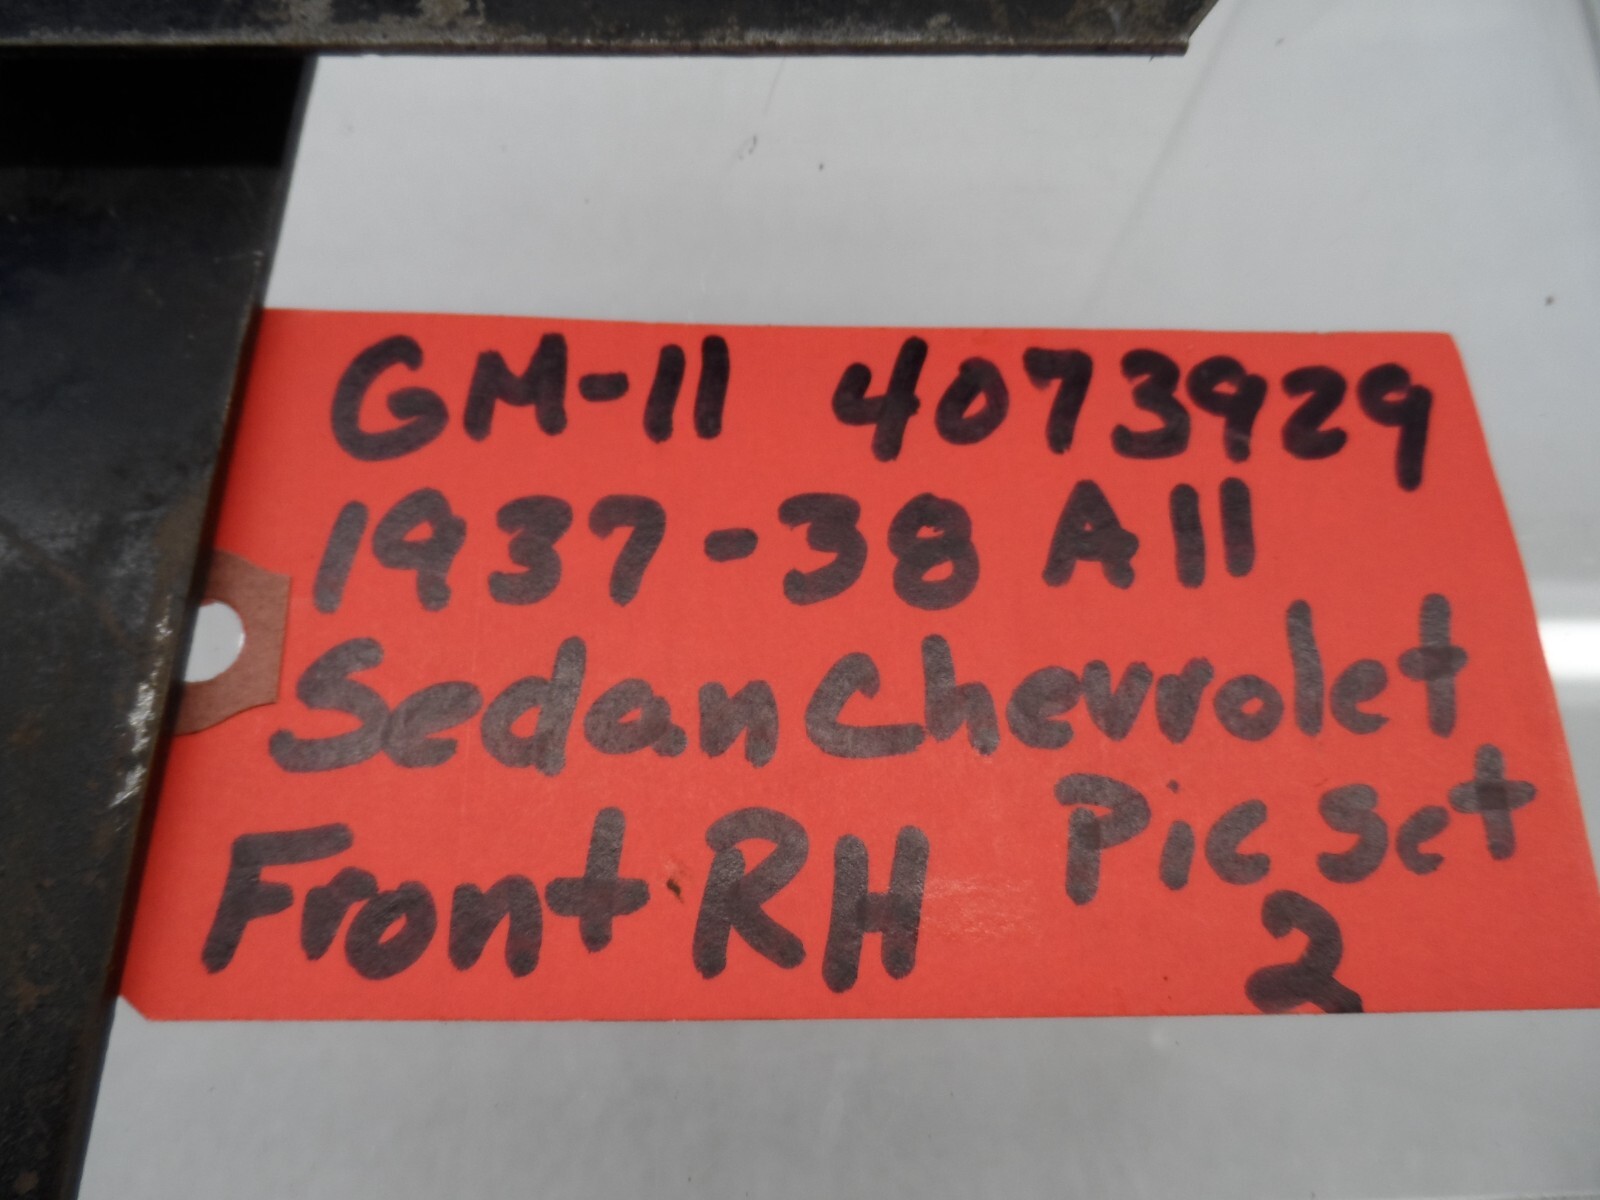 GM-11 4073929
1937-38 All
Sedan Chevrolet
Front RH Pic Set
2